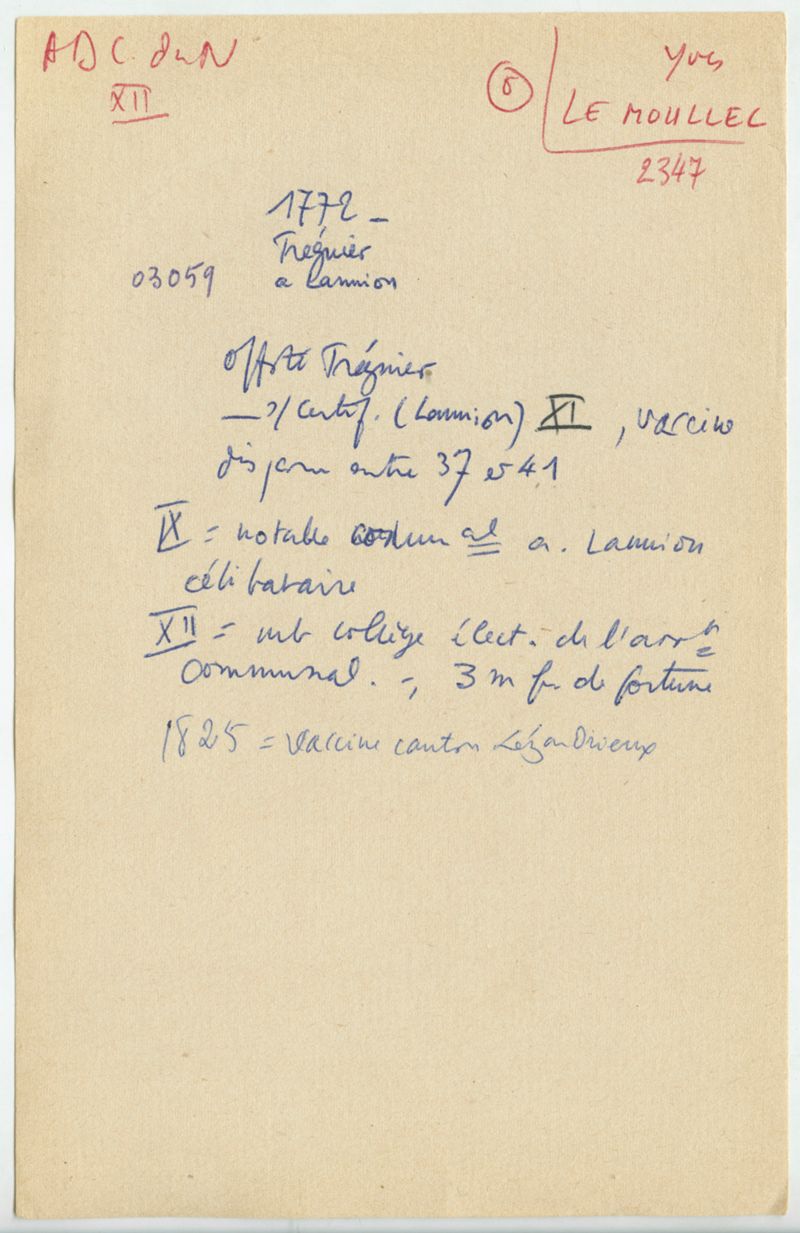 ADC. du N
XII
Yves
LE MOULLEC
2347
1772 –
Tréguier
03059 a Lannion
Tréguier
certif. (Lannion) XI, vaccine
disparu entre 37 et 41
IX = notable communal a. Lannion
célibataire
XII = mb collège élect. de l'arrt
communal. –, 3 m fr de fortune
1825 = vaccine canton Lézardrieux